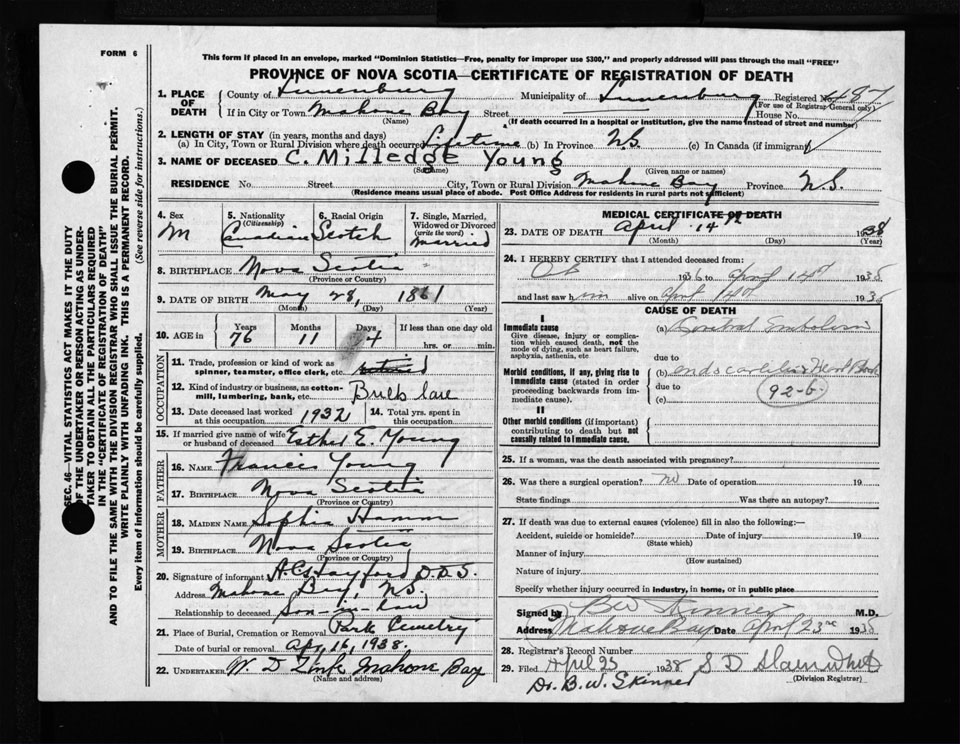 FORM 6
This form if placed in an envelope, marked "Dominion Statistics—Free, penalty for improper use $300," and properly addressed will pass through the mail "FREE"
PROVINCE OF NOVA SCOTIA—CERTIFICATE OF REGISTRATION OF DEATH
1. PLACE OF DEATH County of Lunenburg Municipality of Lunenburg Registered No. 487
(For use of Registrar General only)
If in City or Town Mahone Bay Street House No.
(Name) (If death occurred in a hospital or institution, give the name instead of street and number)
2. LENGTH OF STAY (in years, months and days)
(a) In City, Town or Rural Division where death occurred Lifetime (b) In Province N.S. (c) In Canada (if immigrant)
3. NAME OF DECEASED C. Milledge Young
(Surname) (Given name or names)
RESIDENCE No. Street City, Town or Rural Division Mahone Bay Province N.S.
(Residence means usual place of abode. Post Office Address for residents in rural parts not sufficient)
4. Sex M
5. Nationality (Citizenship) Canadian
6. Racial Origin Scotch
7. Single, Married, Widowed or Divorced (write the word) Married
8. BIRTHPLACE Nova Scotia
(Province or Country)
9. DATE OF BIRTH May 28, 1861
(Month) (Day) (Year)
10. AGE in Years 76 Months 11 Days If less than one day old hrs. or min.
OCCUPATION
11. Trade, profession or kind of work as spinner, teamster, office clerk, etc. retired
12. Kind of industry or business, as cotton-mill, lumbering, bank, etc.
13. Date deceased last worked at this occupation 1932
14. Total yrs. spent in this occupation
15. If married give name of wife or husband of deceased Esther E. Young
FATHER
16. NAME Francis Young
17. BIRTHPLACE Nova Scotia
(Province or Country)
MOTHER
18. MAIDEN NAME Sophia Hamm
19. BIRTHPLACE Nova Scotia
(Province or Country)
20. Signature of informant D.D.S.
Address Mahone Bay, N.S.
Relationship to deceased Son-in-law
21. Place of Burial, Cremation or Removal Park Cemetry
Date of burial or removal Apr, 16, 1938.
22. UNDERTAKER W. D. Zink Mahone Bay
(Name and address)
MEDICAL CERTIFICATE OF DEATH
23. DATE OF DEATH April 14th 1938
(Month) (Day) (Year)
24. I HEREBY CERTIFY that I attended deceased from:
1936 to April 14th 1938
and last saw him alive on April 14th 1938
CAUSE OF DEATH
I
Immediate cause
Give disease, injury or complication which caused death, not the mode of dying, such as heart failure, asphyxia, asthenia, etc
(a) Embolism
due to
Morbid conditions, if any, giving rise to immediate cause (stated in order proceeding backwards from immediate cause).
(b) endocarditis & Heart Block
due to 92-b.
(c)
II
Other morbid conditions (if important) contributing to death but not causally related to immediate cause.
25. If a woman, was the death associated with pregnancy?
26. Was there a surgical operation? no Date of operation 19
State findings Was there an autopsy?
27. If death was due to external causes (violence) fill in also the following:—
Accident, suicide or homicide? Date of injury 19
(State which)
Manner of injury
(How sustained)
Nature of injury
Specify whether injury occurred in industry, in home, or in public place
Signed by B W Skinner M.D.
Address Mahone Bay Date April 23rd 1938
28. Registrar's Record Number
29. Filed April 23 1938 S D
(Division Registrar)
Dr. B. W. Skinner
SEC. 46—VITAL STATISTICS ACT MAKES IT THE DUTY
OF THE UNDERTAKER OR PERSON ACTING AS UNDER-
TAKER TO OBTAIN ALL THE PARTICULARS REQUIRED
IN THE "CERTIFICATE OF REGISTRATION OF DEATH"
AND TO FILE THE SAME WITH THE DIVISION REGISTRAR WHO SHALL ISSUE THE BURIAL PERMIT.
WRITE PLAINLY WITH UNFADING INK. THIS IS A PERMANENT RECORD.
Every item of information should be carefully supplied. (See reverse side for instructions.)